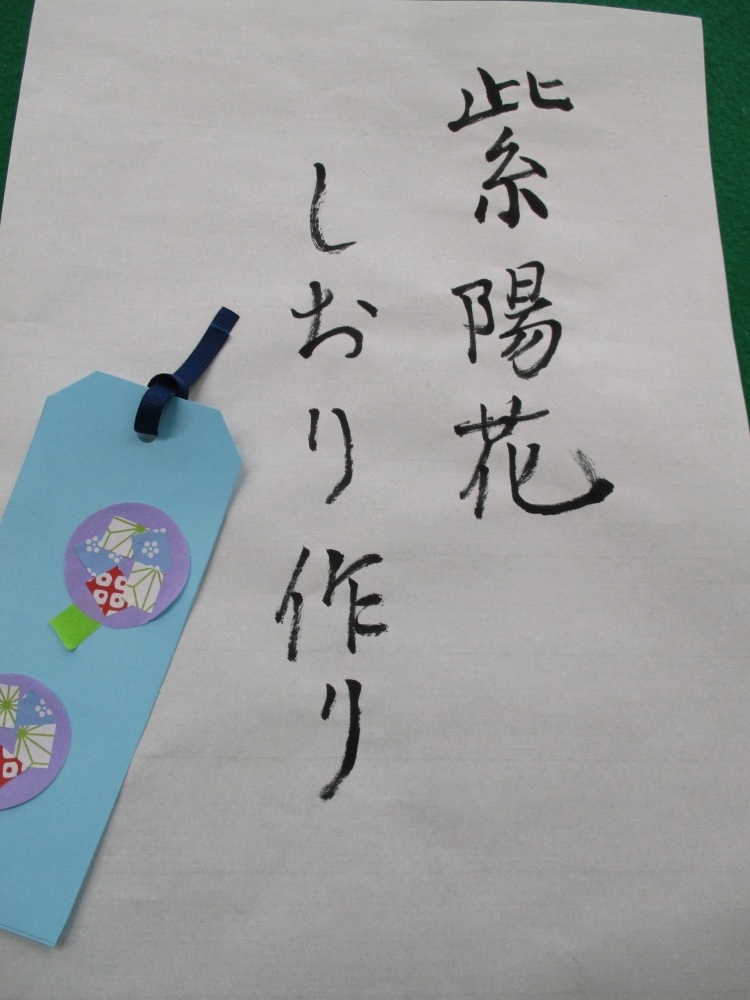 紫陽花
しおり作り